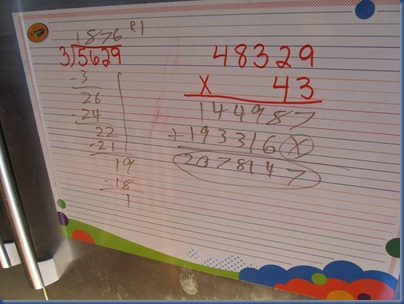 1876 R1
3)5629
-3
26
-24
22
-21
19
-18
1
48329
X 43
144987
+193316X
2078147